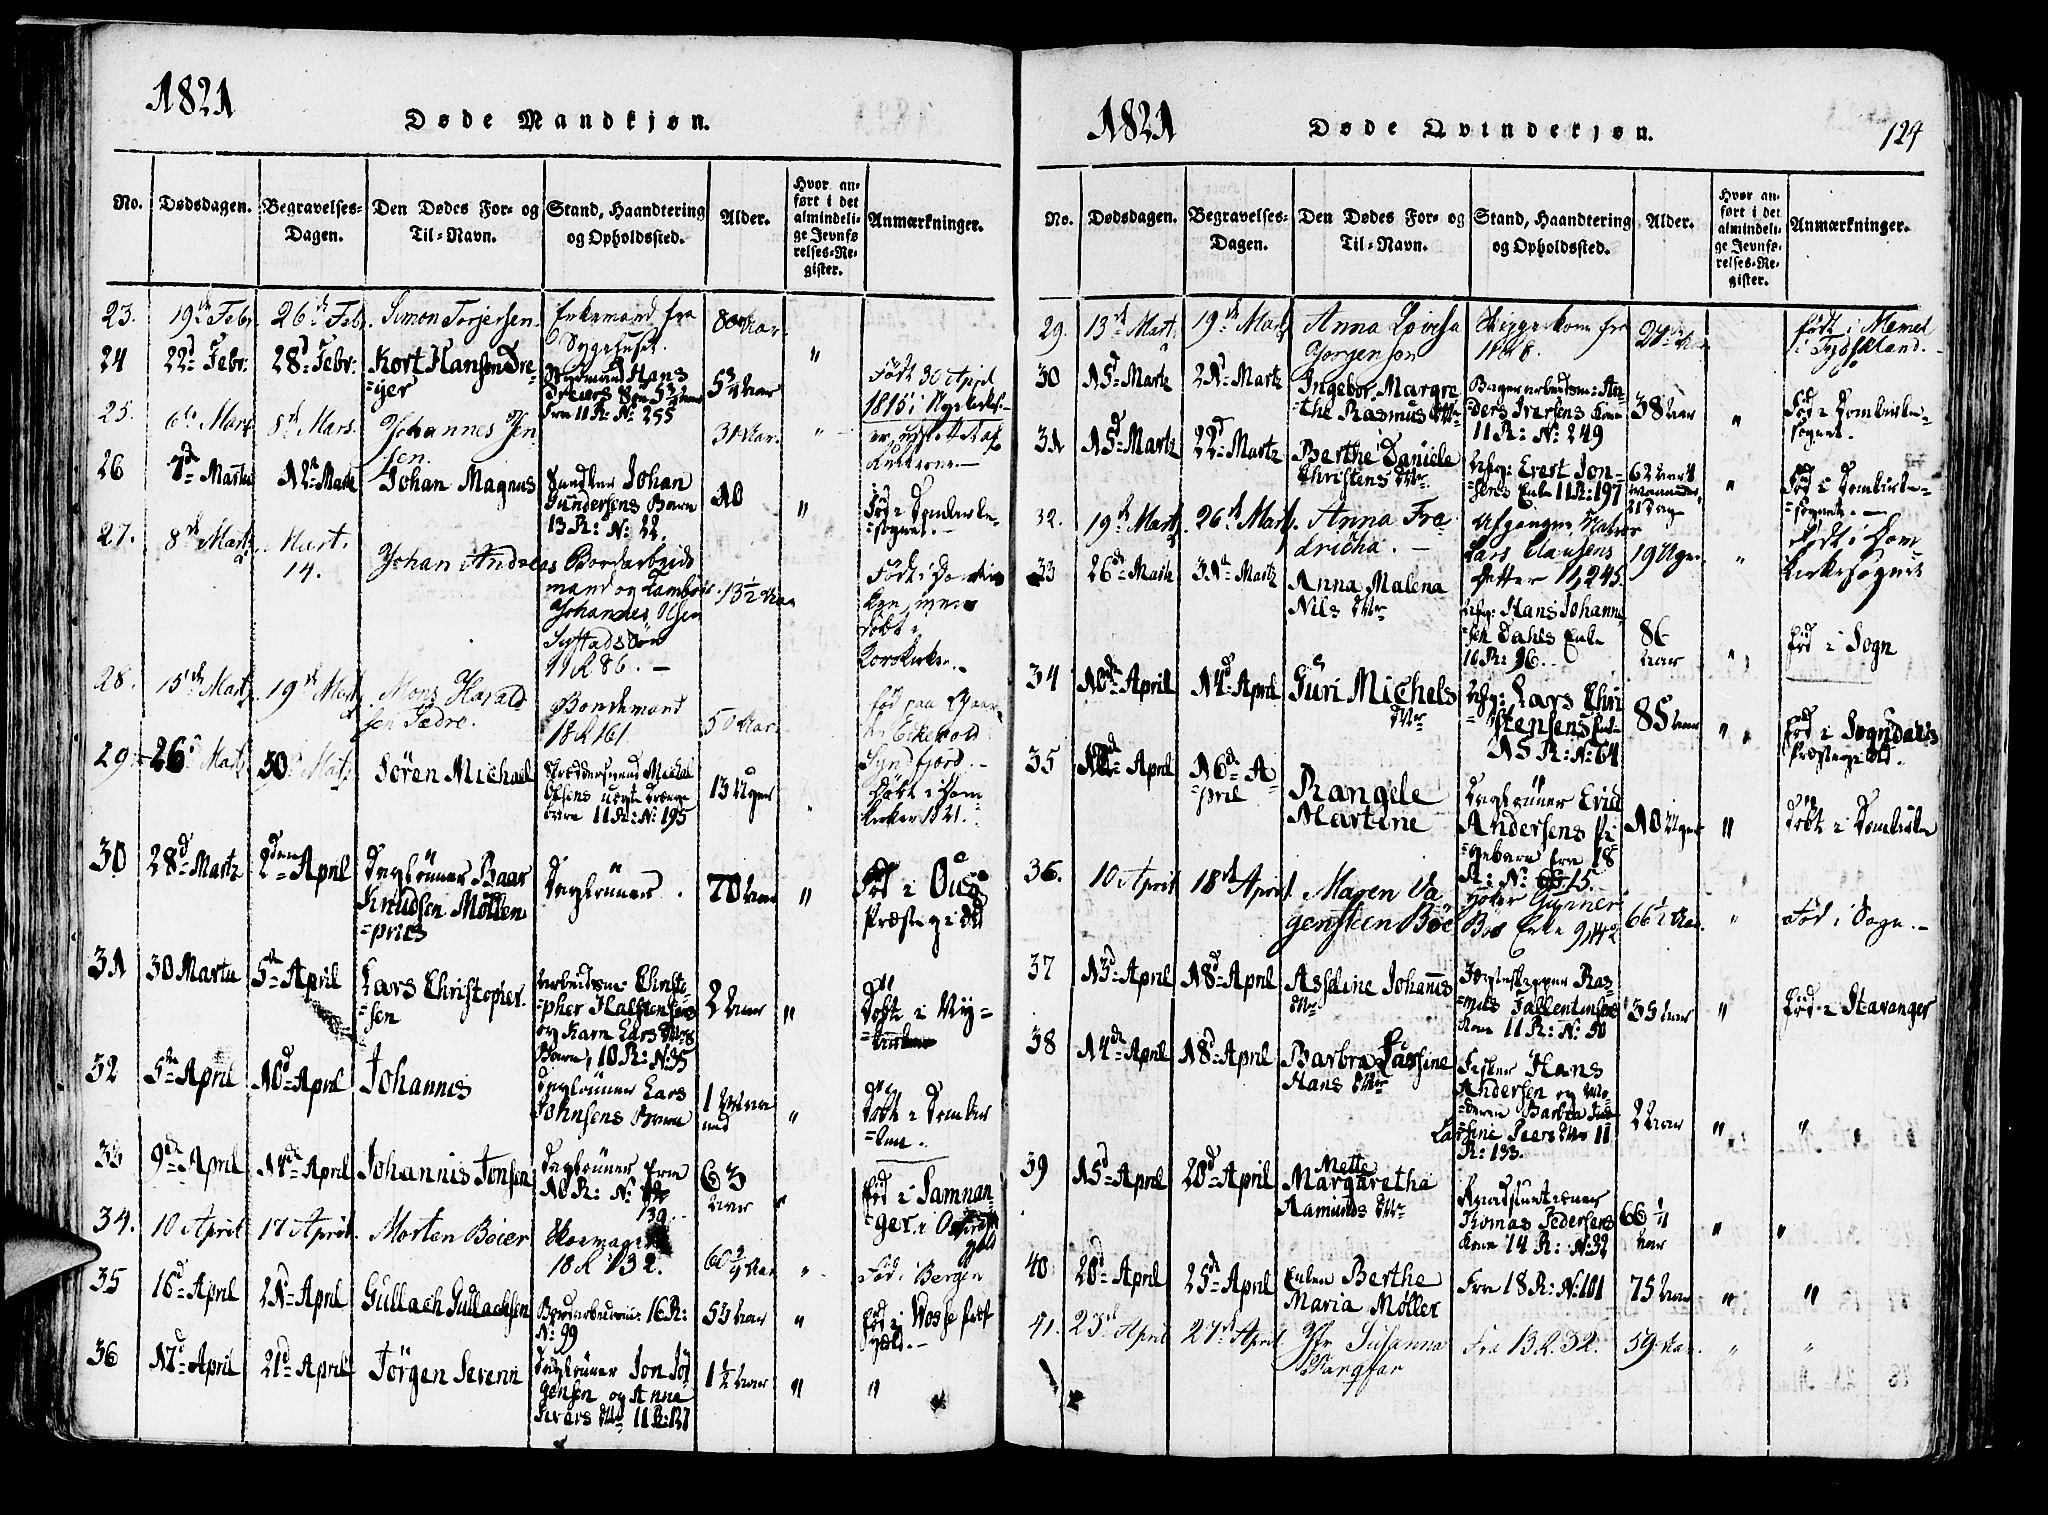 1821
Døde Mandkjøn.
No.
Dødsdagen.
Begravelses-
Dagen.
Den Dødes For- og
Til-Navn.
Stand, Haandtering
og Opholdssted.
Alder.
Hvor an-
ført i det
almindeli-
ge Jevnfø
relses-Re-
gister.
Anmærkninger.
23. 19de Febr. 26de Febr. Simon Torgersen. Enkemand fra
Sygehuset. 80 Aar.
24 22d Febr. 28d Febr. Kort Hansen Dre-
=yer
Styrmand Hans
Dreiers Søn 5¾ Aar
fra 11 R: N: 255
5¾ Aar " Født 30 April
1815 i Nyekirke.
25. 6te Mart. 8de Mars. Johannes Jen
sen. 31 Aar. "
26 7de Martii 12te Martz Johan Magnus
Johan
Gundersens Barn
13 R: N: 22.
10 " Fød i Domkirke-
=sognet.
27. 8de Martz Mart.
14. Johan Andreas Bordarbeids
mand og Tambour
Johannes Olsen
11 R 86.
13½ Aar Født i Domkir
ken, men
døbt i
Korskirken.
28. 15de Mart. 19de Mart. Mons Harald
sen Fedre. Bondemand
18 R 161 50 Aar. fød paa Gaar
Eikevold
Syndfjord.
29 26d Mart. 30d Mart. Sören Michael Skreddersvend Michal
Olsens uægte Drenge
barn 11 R: N: 195
13 Uger " Døbt i Dom-
kirken 1821.
30 28d Martz 2den April Daglönner Baar
Knudsen Möllen-
=pries
Daglönner. 70 Aar " Fød i Ous
Præstegield
31 30 Martii 5te April Lars Christopher-
=sen
Arbeidsm: Christo
=pher Halstensens
og Karn Lars Dtr
Barn, 10 R: N: 35
2 Aar " Døbt i Ny=
kirken
32 5te April 10d April Johannes Daglönner Lars
Johnsens Barn
1 " Döbt i Domkir
=ken.
33 9de April 14de April Johannis Jonsen Daglönner fra
10 R: N:
139.
63
Aar " Fød i Samnan-
=ger i Os Præste
gield
34. 10 April 17 April. Morten Beier Skomager
18 R 132. 60¾ Aar " Fød i Bergen
35 16d April 21de April Gullach Gullachsen Bordarbeidsm: 16 R:
N: 99
53 Aar " Fød i Wosse Præst
gield.
36 17d April 21d April Jörgen Severin Daglönner Jon Jör
gensen og Anne
Ivars Dtr 11 R: 137
1½ Aar " "
1821
Døde Qvindekjøn.
124
No.
Dødsdagen.
Begravelses-
Dagen.
Den Dødes For- og
Til-Navn.
Stand, Haandtering
og Opholdssted.
Alder.
Hvor an-
ført i det
almindeli-
ge Jevnfø-
relses-Re-
gister.
Anmærkninger.
29. 13de Mart. 19de Mart. Anna Lovisa
Jørgenson
Pigge kone fra
27 Aar født i Memel
i Tydskland.
30 15d Martz 21de Martz Ingebor Margre
=the Rasmus Dtr
Bager arbeidsm: An
=ders Iversens kone
11 R: N: 249
38 Aar " Fød i Domkirke-
sognet.
31 15d Martz 22d Martz Berthe Daniele
Christens Dtr
Afg: Evert Jon-
=sens Enke 11 R: 197
62 Aar 4
maaneder
21 Dag " Fød i Domkirke-
=sognet.
32. 19de Mart. 26de Mart. Anna Fre
dricha.
Afgangne Matros
Lars Clausens
Datter 11, 245.
19 Uger " Født i Dom
kirkesognet
33 26de Martz 31te Martz Anna Malena
Nils Dtr
Afg: Hans Johanne
=sen Dahls Enke
16 R: 96.
86
Aar " fød i Sogn
34 10de April 14d April Guri Michels
Dtr
Afg: Lars Chri
=stensens Enke
15 R: N: 64
85 Aar " fød i Sogndals
Præstegield.
35 12de April 16de A=
=pril
Rangele
Martine
Daglönner Erich
Andersens Pi
=gebarn fra 18
R: N: 15.
10 Uger " Döbt i Domkirke
36. 10 April 18de April. Maren Va
gensteen Böe
Höker Gunner
Bøe Enke 9, 142
66½ Aar. " Fød i Sogn.
37 13d April 18d April Asseline Johannis
Dtr
Ras
=mus Fallentinsens
kone 11 R: N: 50
35 Aar " fød i Stavanger
38 14de April 18d April Barbra Lassine
Hans Dtr
Fisker Hans
Andersen og Mo-
=deren Barbra
Lassine Peers Dtr 11
R: 133.
2 Aar " "
39 15d April 20d April Mette
Margaretha
Aamunds Dtr
Tomas Pedersens
kone 14 R: N: 32
66 ¼
Aar " "
40 20d April 25de April Enken Berthe
Maria Møller
Fra 18 R: N: 101 75 Aar " "
41. 23de April 27de April. Jfr Susanna
Fra 13 R. 32. 59 Aar. " "